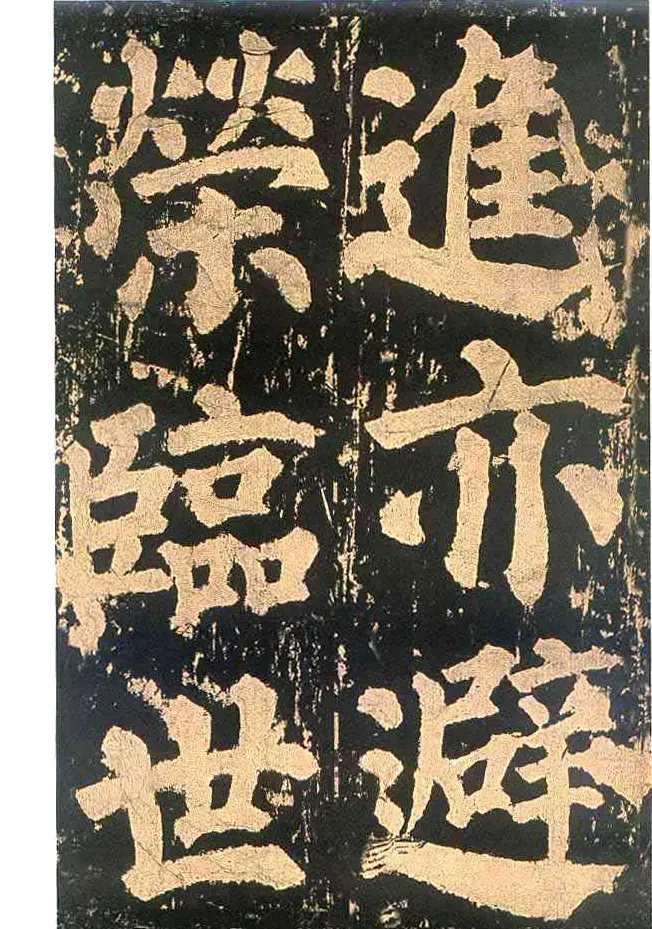 進亦避
榮臨世